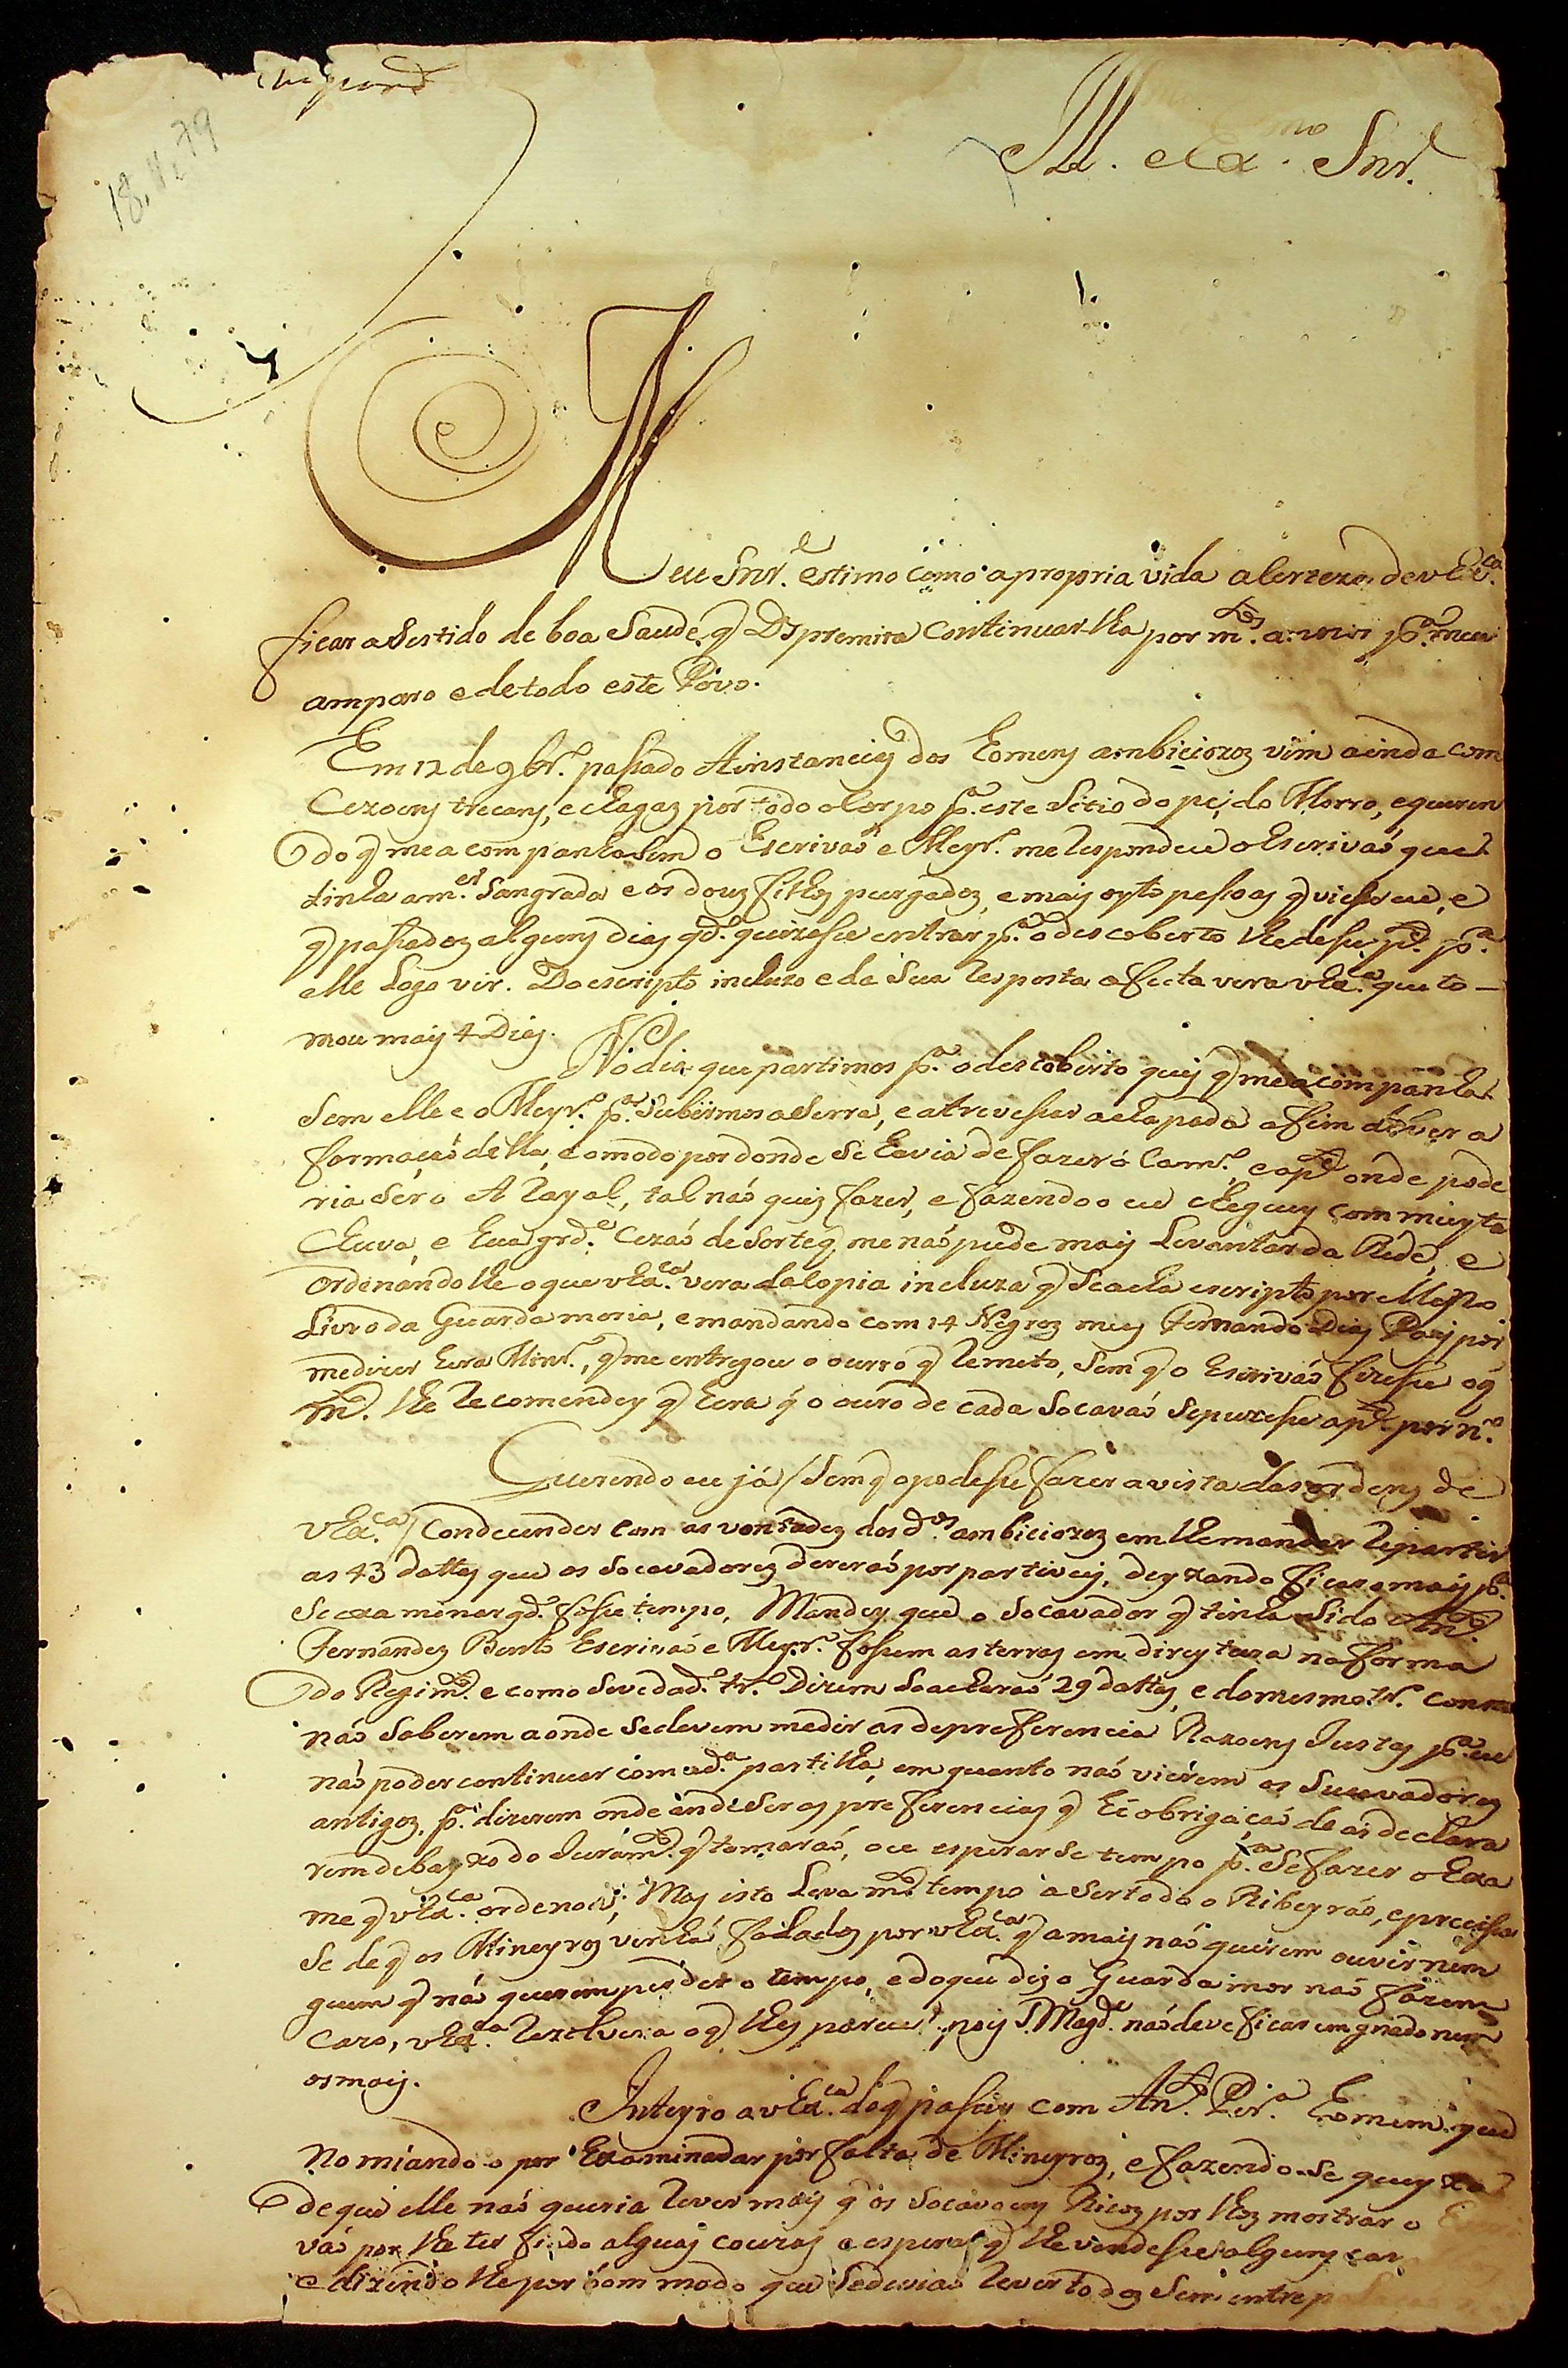 18,4,79
Ill. e Ex.mo Snr.
Meu Snr. estimo como a propria vida a certeza de vEx.ca
ficar asestido de boa Saude q Ds premita continuar lha por m.tos annos p.a meu
amparo e de todo este Povo.
Em 12 de 9br.o passado A instancias dos homens ambiciozos vim ainda com
Cezoens trecans, e chagas por todo o Corpo p.a este Sitio do pé do Morro, e queren
do q me acompanhasem o Escrivaó e Meyr.o me respondeu o Escrivaó que
tinha a m.er Sangrada e os douz filhos purgados, e mais oyto pessoas q viessem, e
q passados alguns dias qd.o quizesse entrar p.a o descoberto lhe desse p.te p.a
elle Logo vir. Do escripto incluzo e da Sua resposta a feita vera vEx.ca que to-
mou mais 4 Dias.
No dia que partimos p.a o descoberto quis q me acompanha
sem elle e o Meyr.o p.a Subirmos a Serra, e atrevessar a chapada a fim de ver a
formaçaó della, e o modo por donde se havia de fazer o Cam.o, e a p.te onde pode
ria Ser o Arayal, tal naó quis fazer, e fazendo o eu cheguey com muyta
Chuva, e hua grd.e Cezaó de Sorte q me naó pude mais Levantar da Rede, e
ordenando lhe o que vEx.ca vera da Copia incluza q Se acha escripto por elle no
Livro da Guarda moria, e mandando com 14 Negros meus Fernando Dias Pais por
me dizer hera Minr.o, q me entregou o ouro q remeto, Sem q o Escrivaó fizesse o q
m.to lhe recomendey q hera q o ouro de cada Socavaó Se puzesse a p.te por n.o
Querendo eu já (Sem q o podesse fazer a vista das ordens de
vEx.ca) Condecender com as vontades dos d.os ambiciozos em lhe mandar repartir
as 43 dattas que os Socavadores deceraó por partiveis, deyxando ficar o mais p.a
Se examinar qd.o fosse tempo, Mandey que o Socavador q tinha Sido An.to
Fernandes Bento Escrivaó e Meyr.o fossem as terras em direytura na forma
do Regim.to e como Se ve do d.o tr.o Dizem Se acharaó 29 dattas, e do mesmo tr.o consta
naó Saberem aonde Se devem medir as de preferencia Rezoens Justas p.a eu
naó poder continuar com a d.a partilha, em quanto naó vierem os Socavadores
antigos p.a dizerem onde ande Ser as preferencias q hé obrigaçaó de as declara
rem debayxo do Juram.to q tomaraó, ou esperar Se tempo p.a Se fazer o Exa
me q vEx.ca ordenou; Mas isto Leva m.to tempo a Ser todo o Ribeyraó, e preciza
Se de q os Mineyros venhaó falados por vEx.ca q a mais naó querem ouvir nem
guem q naó querem perder o tempo, e do que diz o Guarda mor naó fazem
Cazo, vEx.ca rezolvera o q lhes parecer, pois S. Magd.e naó deve ficar emgnado nem
os mais.
Inteyro a vEx.ca do q passey com An.to Pir.a homem que
Nomiando o por Examinador por falta de Mineyros, e fazendo-se queyxa
de que elle naó queria rever mais q os Socavoens Ricos por lhos mostrar o Escri
vaó por lhe ter fiado alguas couzas e esperar q lhe vendesse alguns
e dizendo lhe por bom modo que Se deviaó rever todos Sem